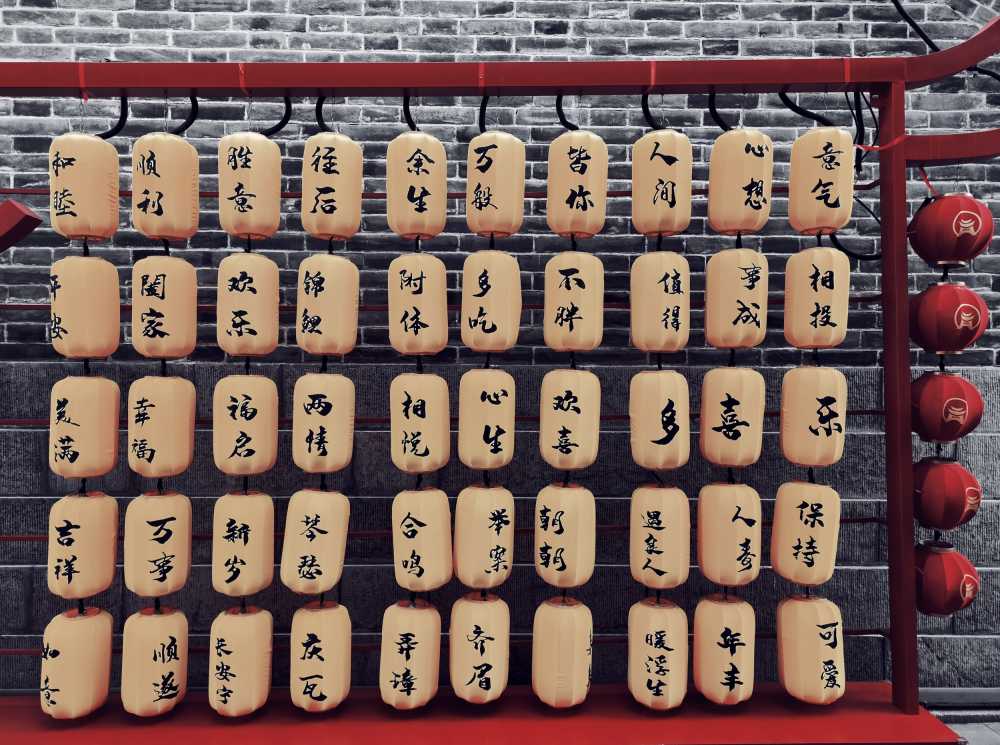 和睦
顺利
胜意
往后
余生
万般
皆你
人间
心想
意气
平安
阖家
欢乐
锦鲤
附体
多吃
不胖
值得
事成
相投
美满
幸福
福启
两情
相悦
心生
欢喜
多
喜
乐
吉祥
万事
新岁
琴瑟
合鸣
举案
朝朝
遇良人
人寿
保持
如意
顺遂
长安宁
庆瓦
弄璋
齐眉
暖浮生
年丰
可爱